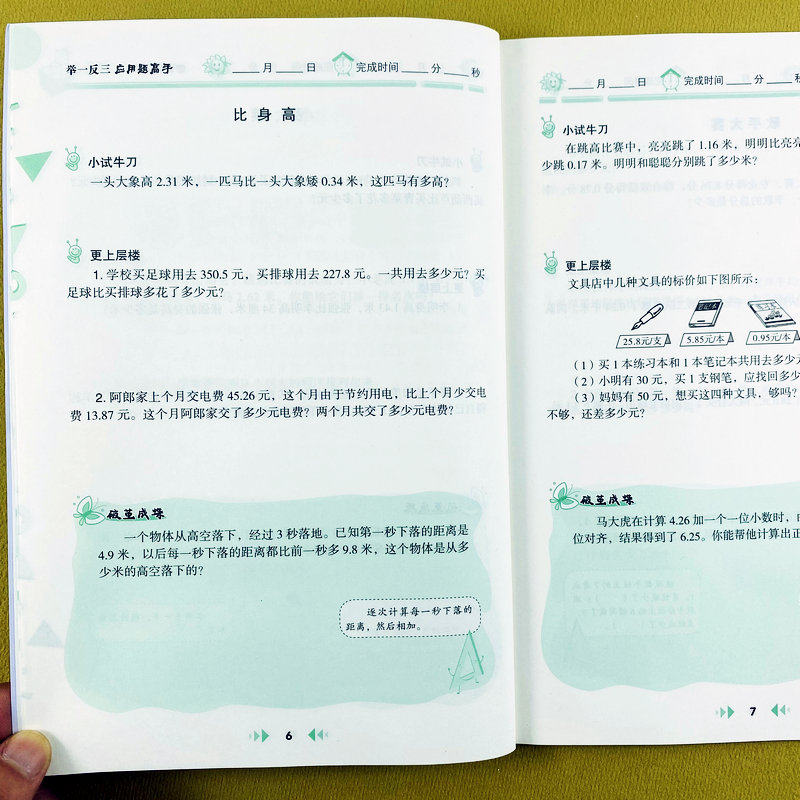 举一反三 应用题高手
____月____日 完成时间____分____秒
比身高
小试牛刀
一头大象高 2.31 米，一匹马比一头大象矮 0.34 米，这匹马有多高？
更上层楼
1. 学校买足球用去 350.5 元，买排球用去 227.8 元。一共用去多少元？买
足球比买排球多花了多少元？
2. 阿郎家上个月交电费 45.26 元，这个月由于节约用电，比上个月少交电
费 13.87 元。这个月阿郎家交了多少元电费？两个月共交了多少元电费？
破茧成蝶
一个物体从高空落下，经过 3 秒落地。已知第一秒下落的距离是
4.9 米，以后每一秒下落的距离都比前一秒多 9.8 米，这个物体是从多
少米的高空落下的？
逐次计算每一秒下落的
距离，然后相加。
6
____月____日 完成时间____分____秒
小试牛刀
在跳高比赛中，亮亮跳了 1.16 米，明明比亮
少跳 0.17 米。明明和聪聪分别跳了多少米？
更上层楼
文具店中几种文具的标价如下图所示：
25.8元/支 5.85元/本 0.95元/本
（1）买 1 本练习本和 1 本笔记本共用去多少
（2）小明有 30 元，买 1 支钢笔，应找回多少
（3）妈妈有 50 元，想买这四种文具，够吗？
不够，还差多少元？
破茧成蝶
马大虎在计算 4.26 加一个一位小数时，
位对齐，结果得到了 6.25。你能帮他计算出正
7